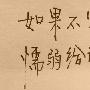 如果不
懦弱给